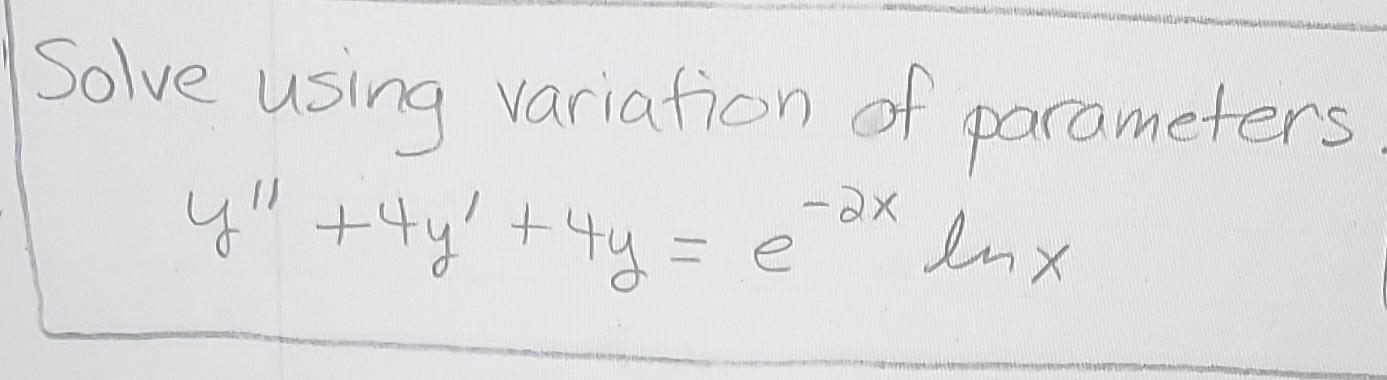 Solve using variation of parameters.
y'' + 4y' + 4y = e^{-2x} ln x